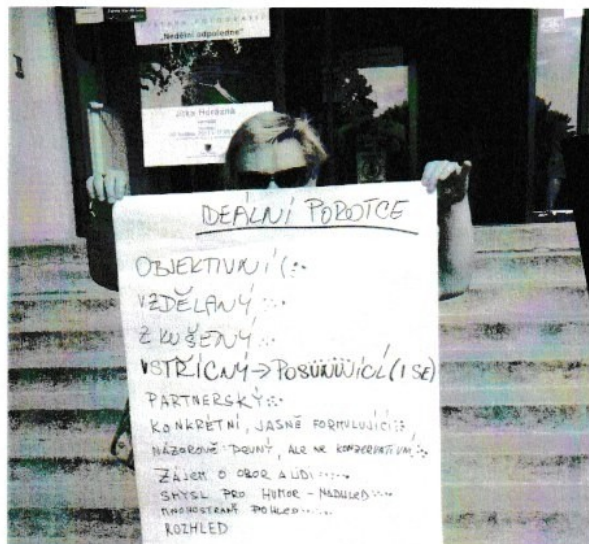 "Nedělní odpoledne"
Jitka Horázná
IDEÁLNÍ POROTCE
OBJEKTIVNÍ (:.
VZDĚLANÝ :.
ZKUŠENÝ
VSTŘÍCNÝ → POSUNUJÍCÍ (I SE)
PARTNERSKÝ :.
KONKRÉTNÍ, JASNĚ FORMULUJÍCÍ
NÁZOROVĚ PEVNÝ, ALE NE KONZERVATIVNÍ
ZÁJEM O OBOR A LIDI
SMYSL PRO HUMOR - NADHLED
MNOHOSTRANÝ POHLED
ROZHLED